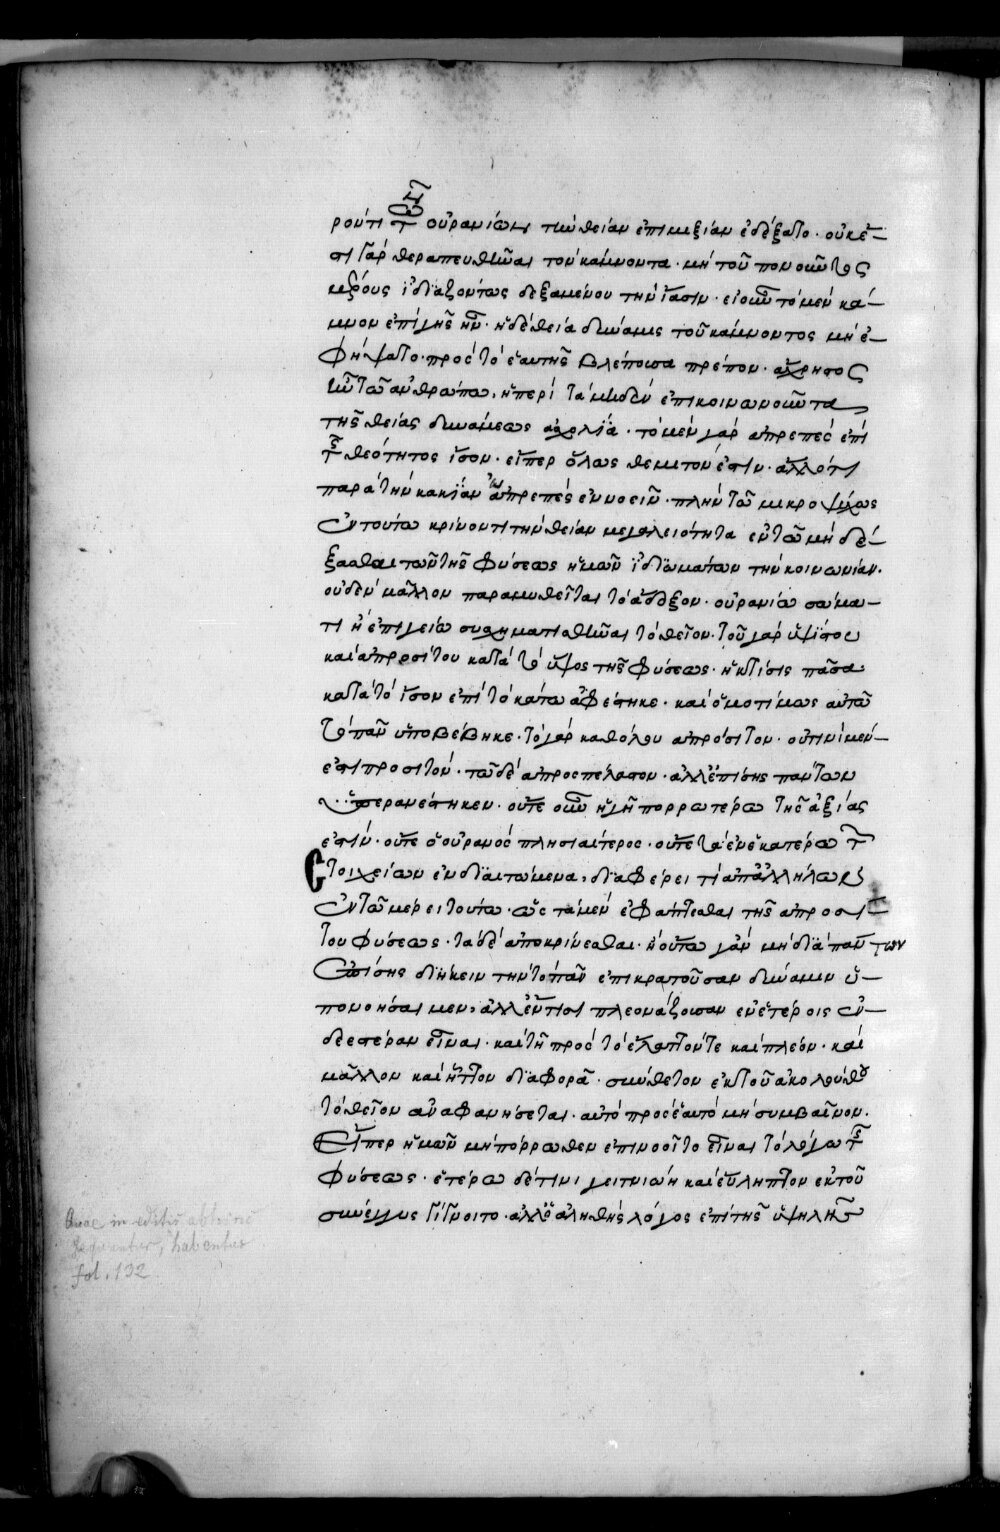 ρούντι τῶν οὐρανίων τὴν θείαν ἐπιμιξίαν ἐδέξατο· οὐκ ἔ-
στι γὰρ θεραπευθῆναι τὸν κάμνοντα· μὴ τοῦ πονοῦντος
μέρους ἰδιαζόντως δεξαμένου τὴν ἴασιν· εἰ οὖν τὸ μὲν κά-
μνον ἐπὶ γῆς ἦν· ἡ δὲ θεία δύναμις τοῦ κάμνοντος μὴ ἐ-
φήψατο· πρὸς τὸ ἑαυτῆς βλέπουσα πρέπον· ἄχρηστος
ἦν τῶ ἀνθρώπω, ἡ περὶ τὰ μηδὲν ἐπικοινωνοῦντα
τῆς θείας δυνάμεως ἀσχολία· τὸ μὲν γὰρ ἀπρεπὲς ἐπὶ
τῆς θεότητος ἴσον· εἴπερ ὅλως θεμιτόν ἐστιν· ἄλλό τι
παρὰ τὴν κακίαν ἀπρεπὲς ἐννοεῖν· πλὴν τῶ μικροψύχως
ἐν τούτω κρίνοντι τὴν θείαν μεγαλειότητα ἐν τῶ μὴ δέ-
ξασθαι τῶν τῆς φύσεως ἡμῶν ἰδιωμάτων τὴν κοινωνίαν·
οὐδὲν μᾶλλον παραμυθεῖται τὸ ἄδοξον· οὐρανίω σώμα-
τι ἢ ἐπιγείω συσχηματισθῆναι τὸ θεῖον· τοῦ γὰρ ὑψίστου
καὶ ἀπροσίτου κατὰ τὸ ὕψος τῆς φύσεως· ἡ κτίσις πᾶσα
κατὰ τὸ ἴσον ἐπὶ τὸ κάτω ἀφέστηκε· καὶ ὁμοτίμως αὐτῶ
τὸ πᾶν ὑποβέβηκε· τὸ γὰρ καθόλου ἀπρόσιτον· οὐ τινὶ μέν
ἐστι προσιτόν· τῶ δὲ ἀπροσπέλαστον· ἀλλ' ἐπίσης πάντων
ὑπερανέστηκεν· οὔτε οὖν ἡ γῆ πορρωτέρω τῆς ἀξίας
ἐστίν· οὔτε ὁ οὐρανὸς πλησιαίτερος· οὔτε τὰ ἐν ἑκατέρω τῶν
στοιχείων ἐνδιαιτώμενα, διαφέρει τὶ ἀπ' ἀλλήλων
ἐν τῶ μέρει τούτω· ὡς τὰ μὲν ἐφάπτεσθαι τῆς ἀπροσί-
του φύσεως· τὰ δὲ ἀποκρίνεσθαι· ἢ οὕτω γ' ἂν μὴ διὰ πάντων
ἐπίσης διήκειν τὴν τὸ πᾶν ἐπικρατοῦσαν δύναμιν ὑ-
πονοήσαιμεν, ἀλλ' ἔν τισι πλεονάζουσαν ἐν ἑτέροις ἐν-
δεεστέραν εἶναι· καὶ τῆ πρὸς τὸ ἔλαττόν τε καὶ πλέον· καὶ
μᾶλλον καὶ ἧττον διαφορᾶ· σύνθετον ἐκ τοῦ ἀκολούθου
τὸ θεῖον ἀναφανήσεται· αὐτὸ πρὸς ἑαυτὸ μὴ συμβαῖνον·
Εἴπερ ἡμῶν μὴ πόρρωθεν ἐπινοοῖτο εἶναι τῶ λόγω τῆς
φύσεως· ἑτέρω δέ τινι γειτνιώη καὶ εὔληπτον ἐκ τοῦ
σύνεγγυς γίγνοιτο· ἀλλ' ὁ ἀληθὴς λόγος ἐπὶ τῆς ὑψηλῆς
Quae in editis abhinc
sequuntur, habentur
fol. 132